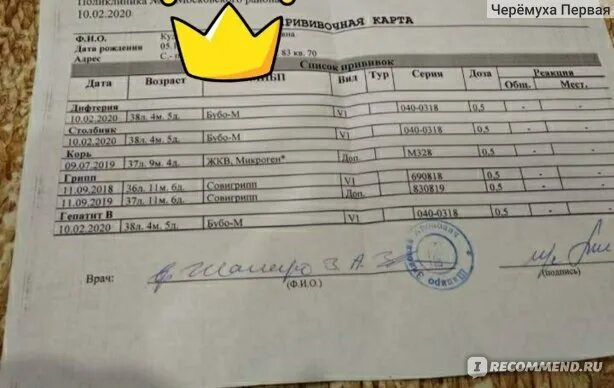 Черёмуха Первая
Поликлиника Московского района
10.02.2020
ПРИВИВОЧНАЯ КАРТА
Ф.И.О.
Дата рождения 05.1
Адрес С.- 83 кв. 70
Список прививок
Дата Возраст Вид Тур Серия Доза Реакция
Общ. Мест.
Дифтерия
10.02.2020 38л. 4м. 5д. Бубо-М V1 040-0318 0,5 - -
Столбняк
10.02.2020 38л. 4м. 5д. Бубо-М V1 040-0318 0,5 - -
Корь
09.07.2019 37л. 9м. 4д. ЖКВ, Микроген* Доп. М328 0,5 - -
Грипп
11.09.2018 36л. 11м. 6д. Совигрипп V1 690818 0,5 - -
11.09.2019 37л. 11м. 6д. Совигрипп Доп. 830819 0,5 - -
Гепатит В
10.02.2020 38л. 4м. 5д. Бубо-М V1 040-0318 0,5 - -
Врач: Шапиро З. А.
(Ф.И.О.) (подпись)
Шапиро
IRECOMMEND.RU